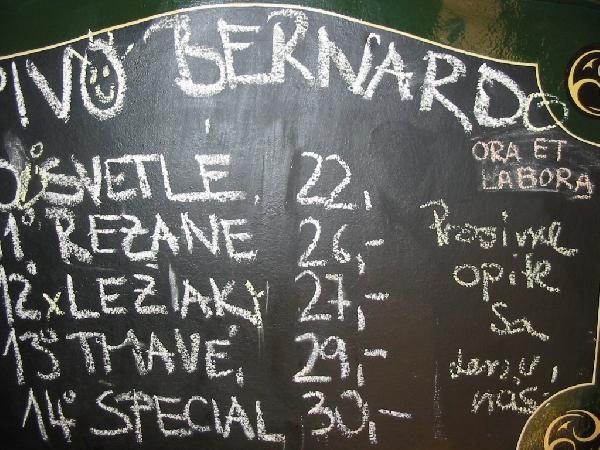 PIVO BERNARD
ORA ET
LABORA
10° SVETLÉ, 22,
11° REZANE 26,-
12° LEŽIAKY 27,-
13° TMAVÉ, 29,-
14° SPECIAL 30,-
opite
sa
nás